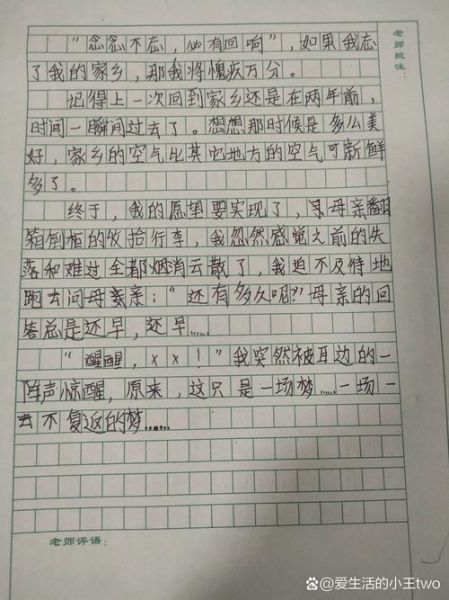 “念念不忘，必有回响”，如果我忘
了我的家乡，那我将愧疚万分。
记得上一次回到家乡还是在两年前，
时间一瞬间过去了。想想那时候是多么美
好，家乡的空气比其它地方的空气可新鲜
多了。
终于，我的愿望要实现了，母亲翻
箱倒柜的收拾行李，我忽然感觉之前的失
落和难过全都烟消云散了，我迫不及待地
跑去问母亲：“还有多久呢？”母亲的回
答总是还早，还早……
“醒醒，××！”我突然被耳边的一
阵声惊醒，原来，这只是一场梦……一场一
去不复返的梦……
老师批注：
老师评语：
@爱生活的小王two